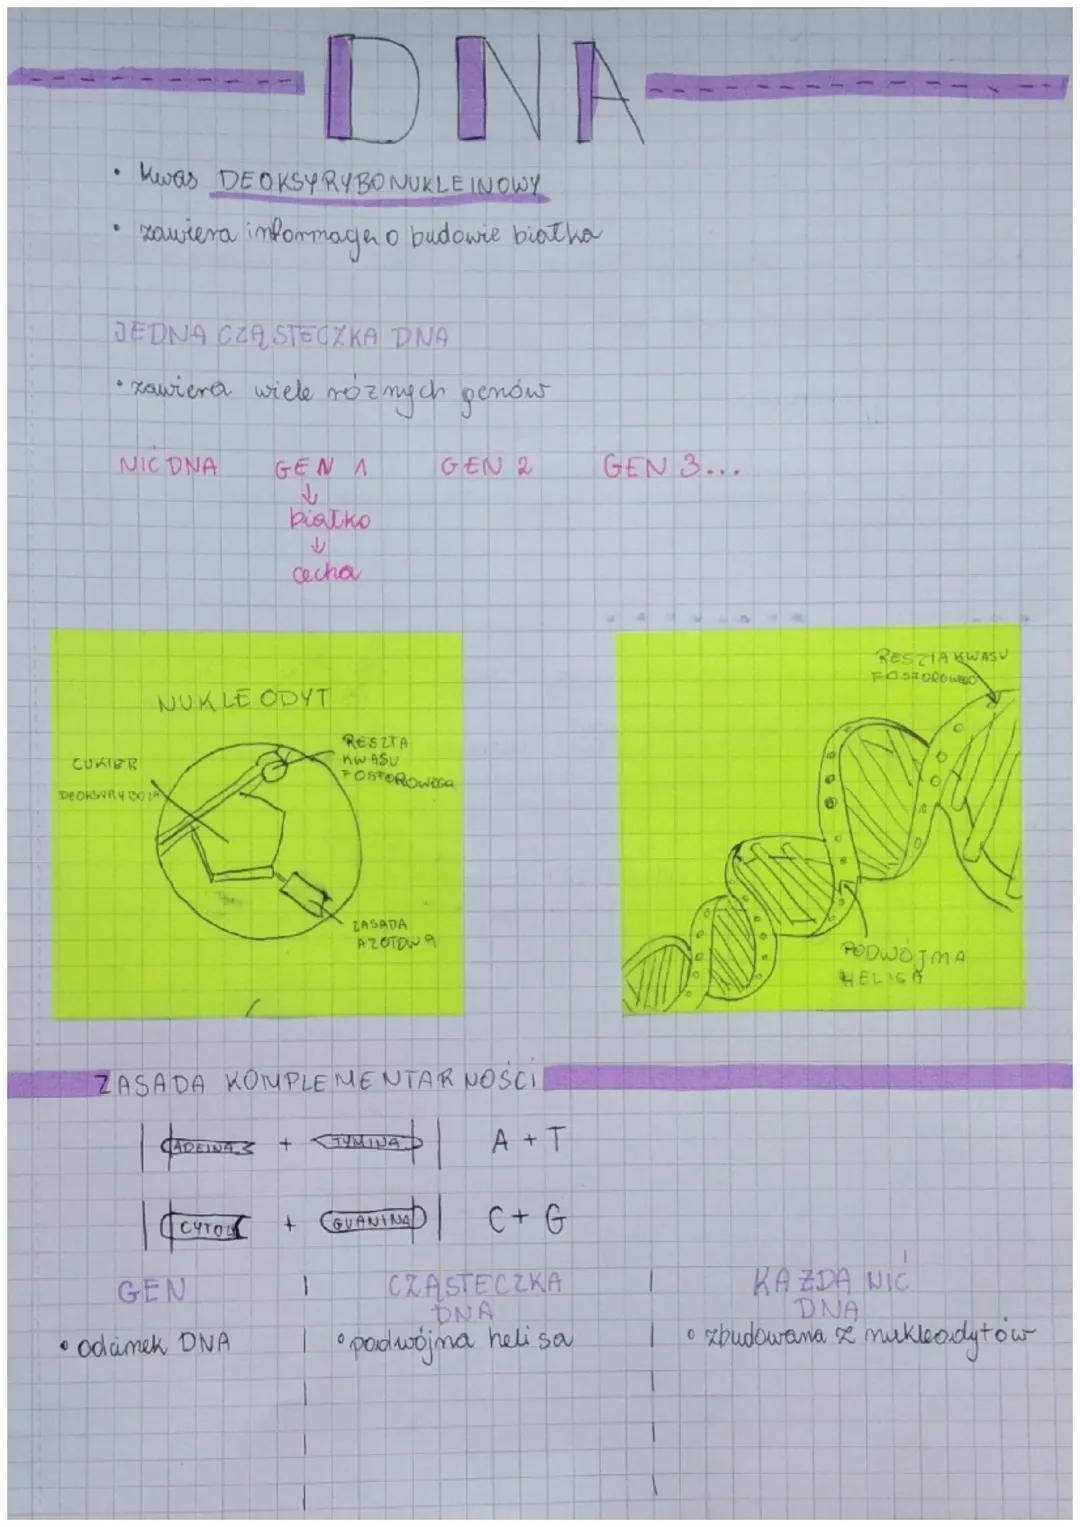 DNA
• Kwas DEOKSYRYBONUKLEINOWY
• zawiera informację o budowie białka
JEDNA CZĄSTECZKA DNA
• zawiera wiele różnych genów
NIĆ DNA GEN 1 GEN 2 GEN 3...
↓
białko
↓
cecha
NUKLEODYT
CUKIER
DEOKSYRYBOZA
RESZTA
KWASU
FOSFOROWEGO
ZASADA
AZOTOWA
RESZTA KWASU
FOSFOROWEGO
PODWÓJMA
HELISA
ZASADA KOMPLEMENTARNOŚCI
ADEINA + TYMINA A + T
+ GUANINA C + G
GEN
• odcinek DNA
CZĄSTECZKA
DNA
• podwójna helisa
KAŻDA NIĆ
DNA
• zbudowana z nukleodytów